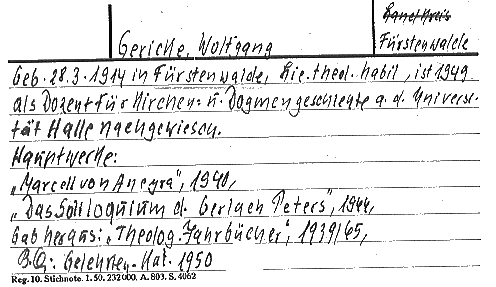 Landkreis
Gericke, Wolfgang
Fürstenwalde
Geb. 28.3.1914 in Fürstenwalde, Lic. theol. habil, ist 1949
als Dozent für Kirchen- u. Dogmengeschichte a. d. Universi-
tät Halle nachgewiesen.
Hauptwerke:
„Marcell von Ancyra", 1940,
„Das Soliloquium d. Gerlach Peters", 1944,
Gab heraus: „Theolog. Jahrbücher", 1939/45,
B.Q: Gelehrten-Kal. 1950
Reg. 10. Stichnote. 1. 50. 232000. A. 803. S. 4062